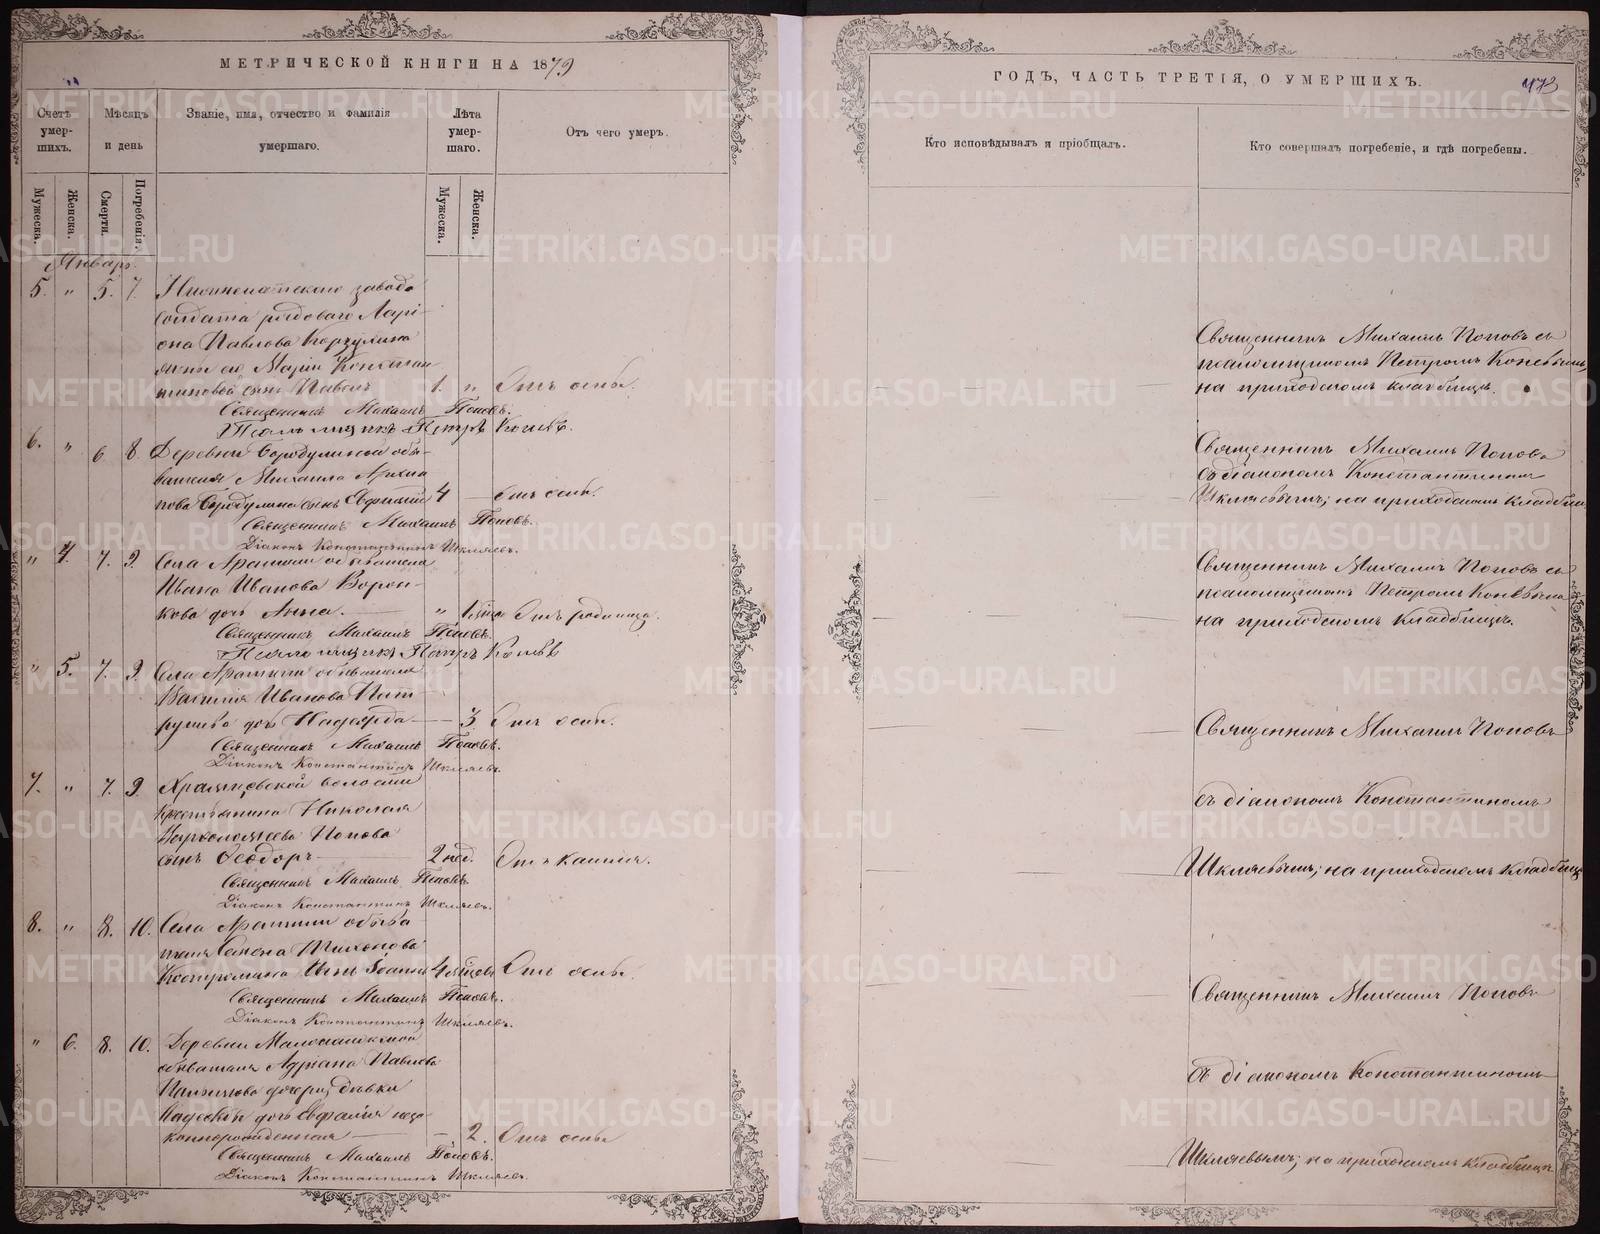 МЕТРИЧЕСКОЙ КНИГИ НА 1879
Счетъ умер-шихъ.
Мѣсяцъ и день
Званіе, имя, отчество и фамилія умершаго.
Лѣта умер-шаго.
Отъ чего умеръ.
Мужеска.
Женска.
Смерти.
Погребенія.
Мужеска.
Женска.
Январь.
5. " 5. 7. завода
солдата рядоваго Ларі-
она Павлова
жены его Маріи Констан
тиновой сынъ Павелъ 1. " Отъ оспы.
Священникъ Михаилъ Поповъ.
Псаломщикъ Петръ
6. " 6 8. Деревни обы-
вателя Михаила Архип
пова сынъ Евфимій 4 — Отъ оспы.
Священникъ Михаилъ Поповъ.
Діаконъ Константинъ Шкляевъ.
" 4. 7. 9. Села обывателя
Ивана Иванова Ворон-
кова дочь Анна. — " Отъ родимца.
Священникъ Михаилъ Поповъ.
Псаломщикъ Петръ
" 5. 7. 9. Села обывателя
Василія Иванова Пат
рушева дочь Надежда — — 3. Отъ оспы.
Священникъ Михаилъ Поповъ.
Діаконъ Константинъ Шкляевъ.
7. " 7. 9. волости
крестьянина Николая
Варѳоломеева Попова
сынъ Ѳеодоръ — 2 нед. Отъ кашля.
Священникъ Михаилъ Поповъ.
Діаконъ Константинъ Шкляевъ.
8. " 8. 10. Села обыва
теля Семена Тихонова
сынъ Іоаннъ 4 Отъ оспы.
Священникъ Михаилъ Поповъ.
Діаконъ Константинъ Шкляевъ.
" 6. 8. 10. Деревни
обывателя Адріана Павлова
дочери, дѣвки
дочь неза-
коннорожденная — —. 2. Отъ оспы
Священникъ Михаилъ Поповъ.
Діаконъ Константинъ Шкляевъ.
ГОДЪ, ЧАСТЬ ТРЕТІЯ, О УМЕРШИХЪ.
Кто исповѣдывалъ и пріобщалъ.
Кто совершалъ погребеніе, и гдѣ погребены.
Священникъ Михаилъ Поповъ съ
псаломщикомъ Петромъ
на приходскомъ кладбищѣ.
Священникъ Михаилъ Поповъ
съ діакономъ Константиномъ
Шкляевымъ; на приходскомъ кладбищ
Священникъ Михаилъ Поповъ съ
псаломщикомъ Петромъ
на приходскомъ кладбищѣ.
Священникъ Михаилъ Поповъ
съ діакономъ Константиномъ
Шкляевымъ; на приходскомъ кладбищѣ
Священникъ Михаилъ Поповъ
съ діакономъ Константиномъ
Шкляевымъ; на приходскомъ кладбищѣ
METRIKI.GASO-URAL.RU